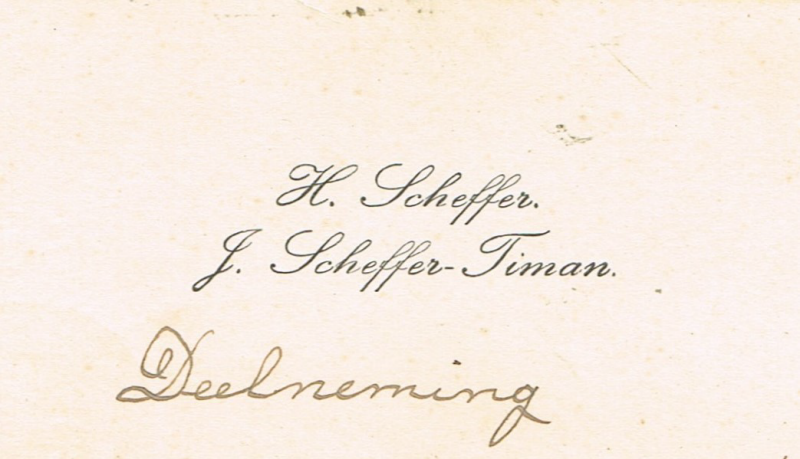 H. Scheffer.
J. Scheffer-Timan.
Deelneming